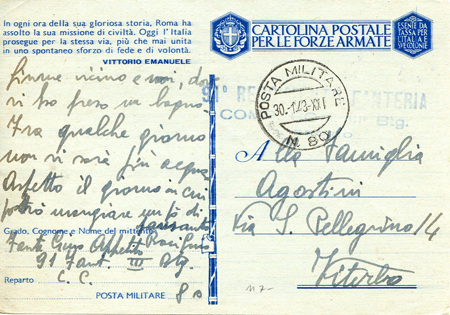 In ogni ora della sua gloriosa storia, Roma ha
assolto la sua missione di civiltà. Oggi l'Italia
prosegue per la stessa via, più che mai unita
in uno spontaneo sforzo di fede e di volontà.
VITTORIO EMANUELE
CARTOLINA POSTALE
PER LE FORZE ARMATE
ESENTE DA
TASSA PER
L'ITALIA E
COLONIE
vicino a noi, dove
vi ho preso un bagno.
Fra qualche giorno
non vi sarà più acqua
Aspetto il giorno in cui
potrò mangiare un pò di
Grado, Cognome e Nome del mittente
Fante
91 Fant. III Btg.
Reparto C. C.
POSTA MILITARE 80
POSTA MILITARE
30.-1.43-XXI
N. 80
91°
FANTERIA
Btg.
Alla Famiglia
Agostini
Via S. Pellegrino 14
Viterbo